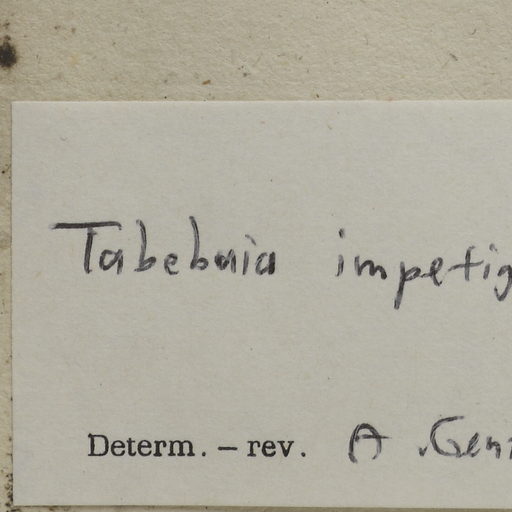 Tabebuia impetig
Determ. – rev. A. Gen